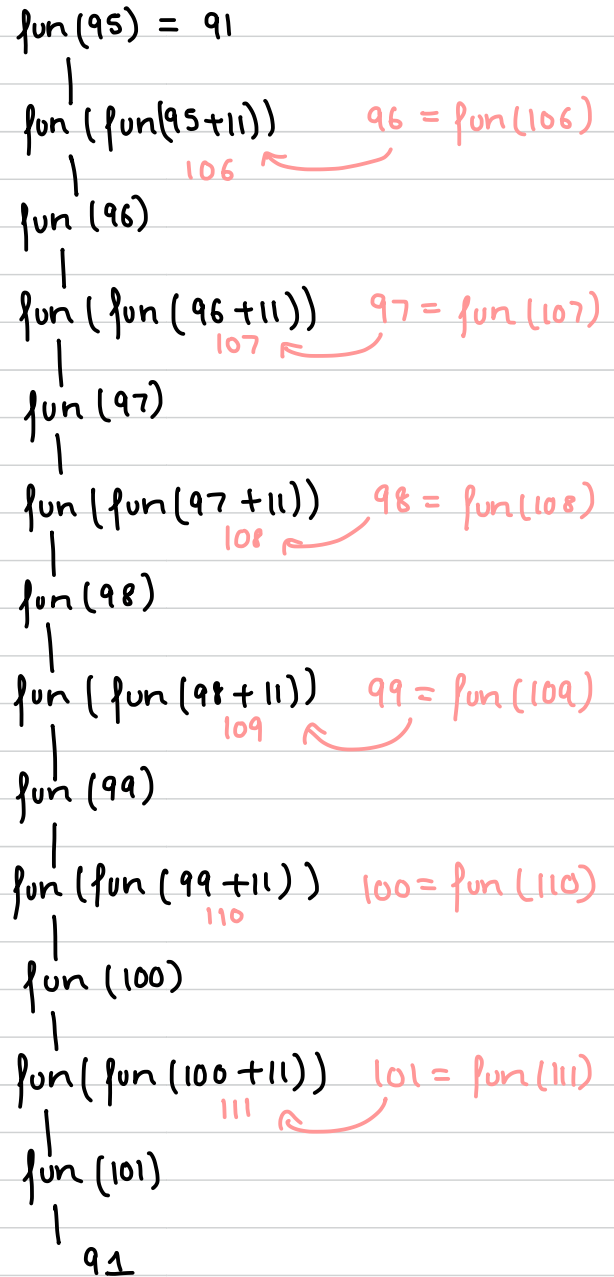 fun(95) = 91
fun(fun(95+11)) 96 = fun(106)
106
fun(96)
fun(fun(96+11)) 97 = fun(107)
107
fun(97)
fun(fun(97+11)) 98 = fun(108)
108
fun(98)
fun(fun(98+11)) 99 = fun(109)
109
fun(99)
fun(fun(99+11)) 100 = fun(110)
110
fun(100)
fun(fun(100+11)) 101 = fun(111)
111
fun(101)
91